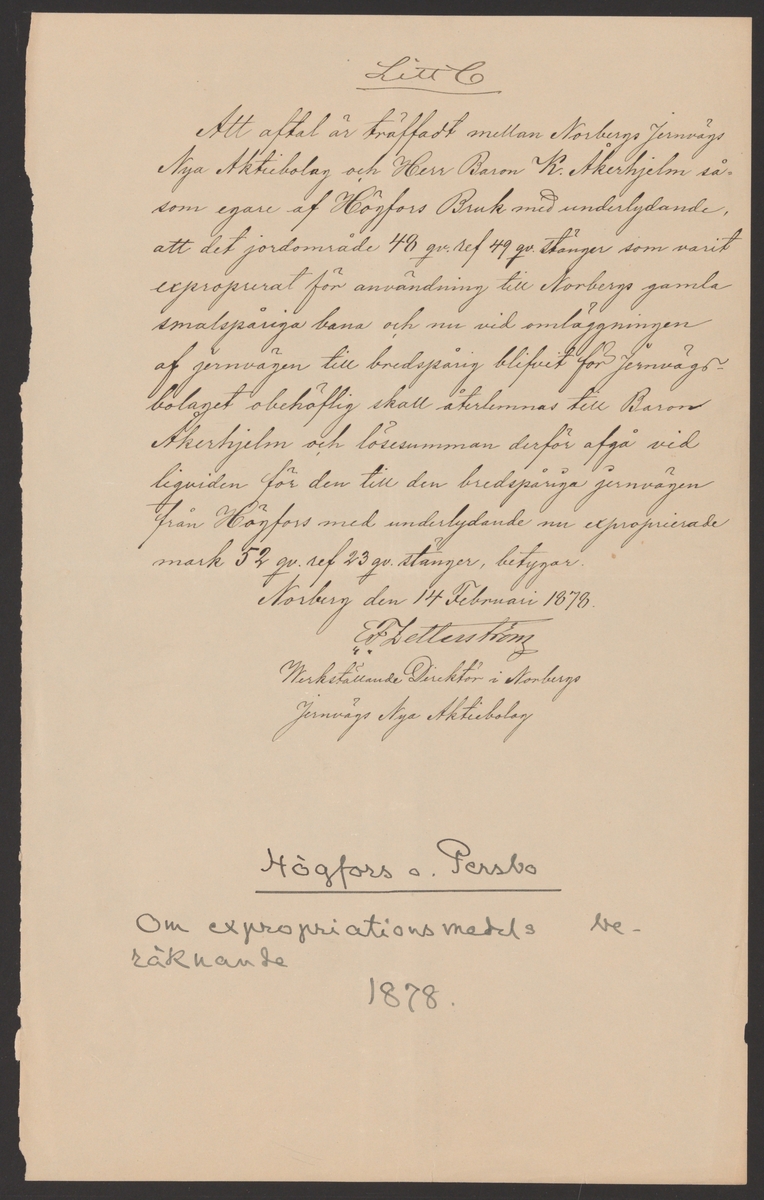 Litt C
Att aftal är träffadt mellan Norbergs Jernvägs
Nya Aktiebolag och Herr Baron K. Åkerhjelm så-
som egare af Högfors Bruk med underlydande,
att det jordområde 48 qv. ref 49 qv. stänger som varit
exproprierat för användning till Norbergs gamla
smalspåriga bana och nu vid omläggningen
af jernvägen till bredspårig blifvit för Jernvägs-
bolaget obehöflig skall återlemnas till Baron
Åkerhjelm och lösesumman derför afgå vid
liqviden för den till den bredspåriga jernvägen
från Högfors med underlydande nu exproprierade
mark 52 qv. ref 23 qv. stänger, betygar.
Norberg den 14 Februari 1878.
E F Zetterström
Werkställande Direktör i Norbergs
Jernvägs Nya Aktiebolag
Högfors o. Persbo
Om expropriationsmedels be-
räknande
1878.